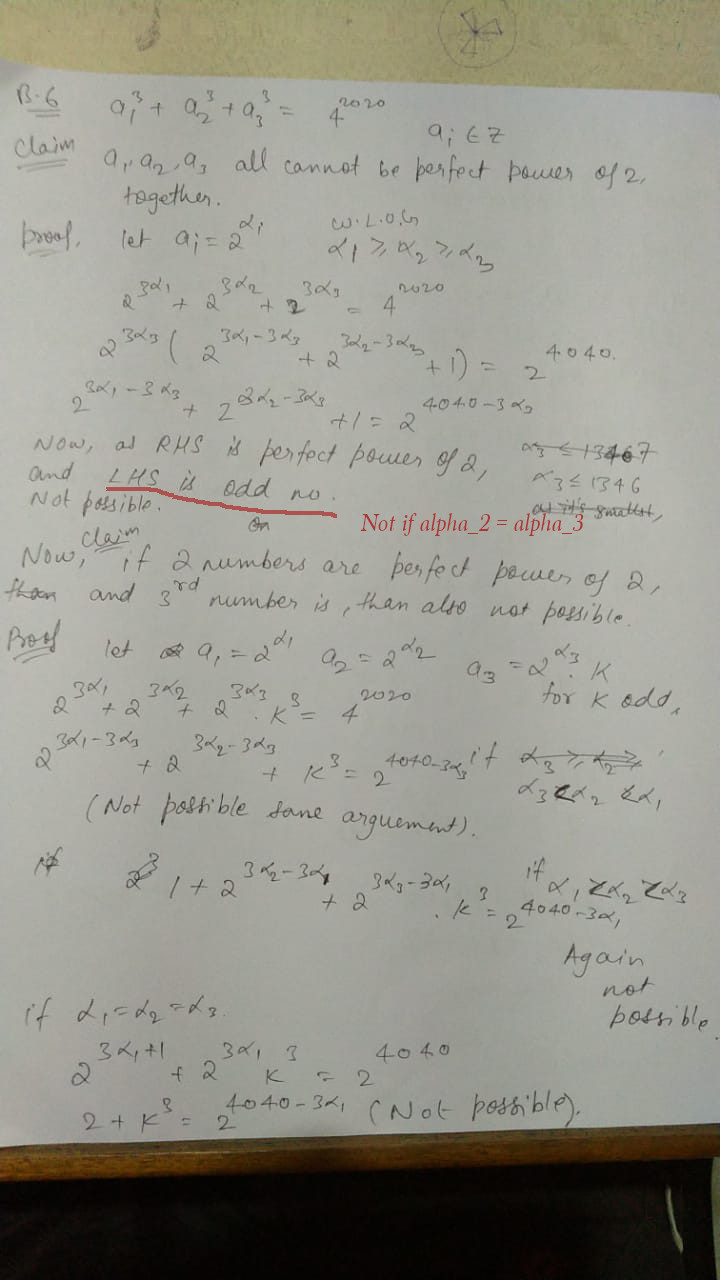 B.6 a₁³ + a₂³ + a₃³ = 4²⁰²⁰
aᵢ ∈ Z
Claim a₁, a₂, a₃ all cannot be perfect power of 2,
together.
Proof. let aᵢ = 2^{αᵢ} W.L.O.G
α₁ ≥ α₂ ≥ α₃
2^{3α₁} + 2^{3α₂} + 2^{3α₃} = 4^{2020}
2^{3α₃} ( 2^{3α₁-3α₃} + 2^{3α₂-3α₃} + 1) = 2^{4040}.
2^{3α₁-3α₃} + 2^{3α₂-3α₃} + 1 = 2^{4040-3α₃}
Now, as RHS is perfect power of 2,
α₃ ≤ 1346
and LHS is odd no.
as it's smallest,
Not possible.
Not if alpha_2 = alpha_3
Claim
Now, if 2 numbers are perfect power of 2,
than and 3rd number is, than also not possible.
Proof let a₁ = 2^{α₁} a₂ = 2^{α₂} a₃ = 2^{α₃}. K
for K odd,
2^{3α₁} + 2^{3α₂} + 2^{3α₃}. K³ = 4^{2020}
2^{3α₁-3α₃} + 2^{3α₂-3α₃} + K³ = 2^{4040-3α₃} if α₃ ≥ α₂
α₃ < α₂ < α₁
(Not possible same arguement).
if 1 + 2^{3α₂-3α₁} + 2^{3α₃-3α₁} . K³ = 2^{4040-3α₁} if α₁ < α₂ < α₃
Again
not
possible.
if α₁ = α₂ = α₃.
2^{3α₁+1} + 2^{3α₁} K³ = 2^{4040}
2 + K³ = 2^{4040-3α₁} (Not possible).